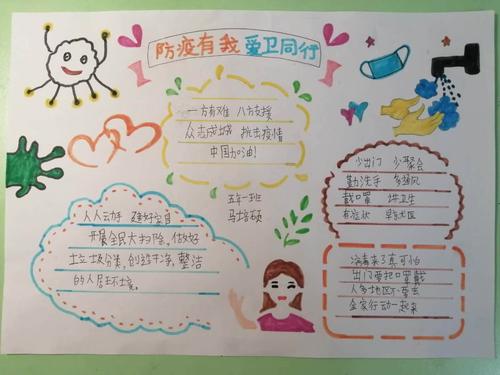 防疫有我 爱卫同行
一方有难 八方支援
众志成城 抗击疫情
中国加油!
五年一班
少出门 少聚会
勤洗手 多通风
戴口罩 讲卫生
有症状 早就医
人人动手 建好家园
开展全民大扫除, 做好
垃圾分类, 创造干净、整洁
的人居环境。
病毒来了真可怕
出门要把口罩戴
人多地区不要去
全家行动一起来